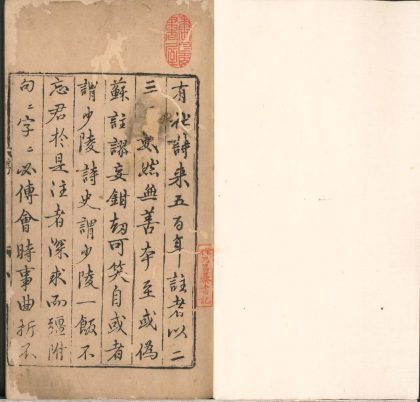 有杜詩来五百年註者以二
三一然無善本至或偽
蘇註謬妄鉗刼可笑自或者
謂少陵詩史謂少陵一飯不
忘君於是注者深求而疆附
句〻字〻必傅會時事曲折不